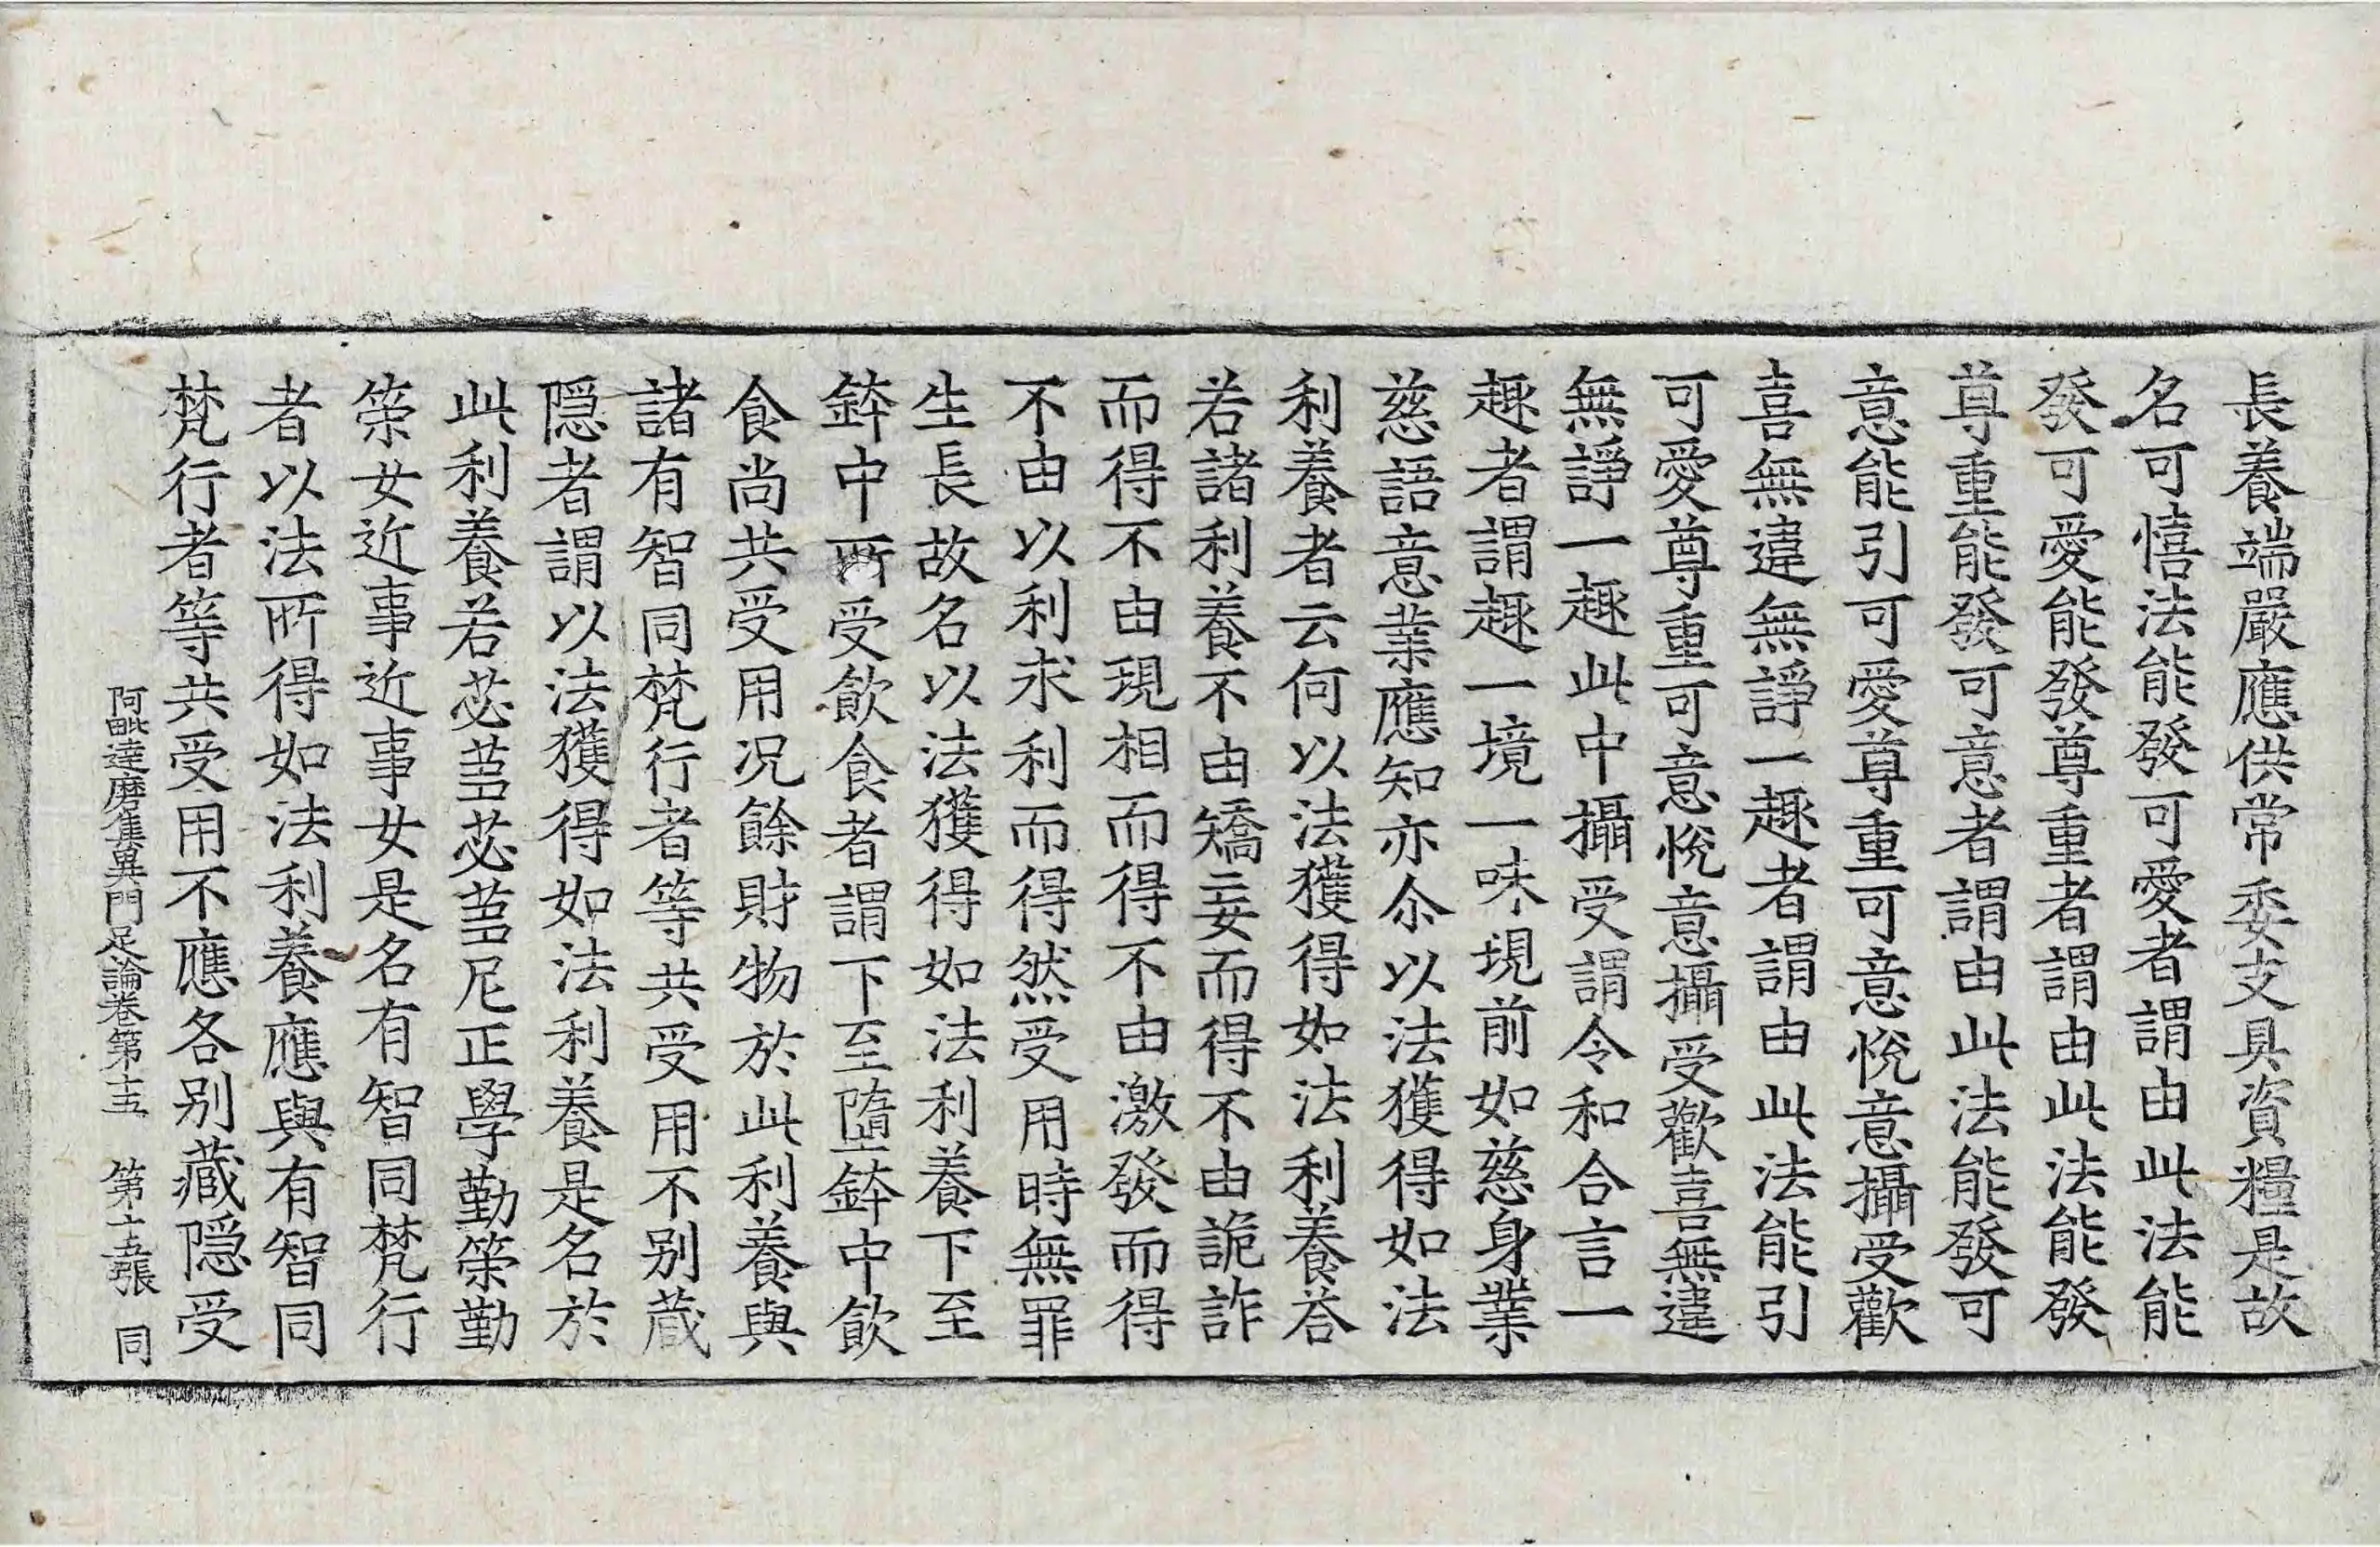 長養端嚴應供常委支具資糧是故
名可憘法能發可愛者謂由此法能
發可愛能發尊重者謂由此法能發
尊重能發可意者謂由此法能發可
意能引可愛尊重可意悅意攝受歡
喜無違無諍一趣者謂由此法能引
可愛尊重可意悅意攝受歡喜無違
無諍一趣此中攝受謂令和合言一
趣者謂趣一境一味現前如慈身業
慈語意業應知亦尒以法獲得如法
利養者云何以法獲得如法利養荅
若諸利養不由矯妄而得不由詭詐
而得不由現相而得不由激發而得
不由以利求利而得然受用時無罪
生長故名以法獲得如法利養下至
鉢中所受飲食者謂下至墮鉢中飲
食尚共受用况餘財物於此利養與
諸有智同梵行者等共受用不别藏
隱者謂以法獲得如法利養是名於
此利養若苾蒭苾蒭尼正學勤策勤
策女近事近事女是名有智同梵行
者以法所得如法利養應與有智同
梵行者等共受用不應各别藏隱受
阿毗達磨集異門足論卷第十五 第十五張 同